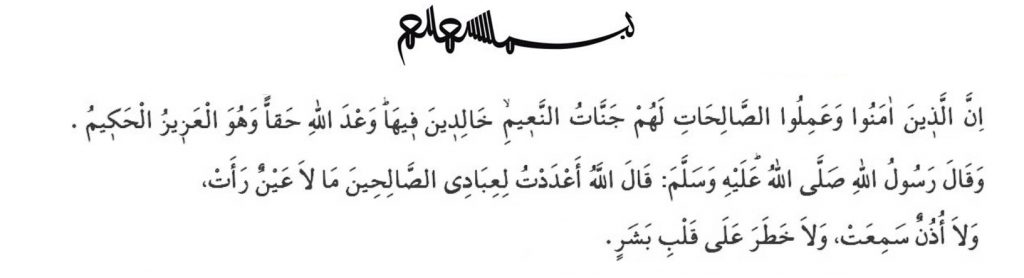 بسم الله الرحمن الرحيم
اِنَّ الَّذ۪ينَ اٰمَنُوا وَعَمِلُوا الصَّالِحَاتِ لَهُمْ جَنَّاتُ النَّع۪يمِۙ خَالِد۪ينَ ف۪يهَاۜ وَعْدَ اللهِ حَقاًّ وَهُوَ الْعَز۪يزُ الْحَك۪يمُ .
وَقَالَ رَسُولُ اللهِ صَلَّى اللهُ عَلَيْهِ وَسَلَّمَ: قَالَ اللَّهُ أَعْدَدْتُ لِعِبَادِى الصَّالِحِينَ مَا لاَ عَيْنٌ رَأَتْ،
وَلاَ أُذُنٌ سَمِعَتْ، وَلاَ خَطَرَ عَلَى قَلْبِ بَشَرٍ .